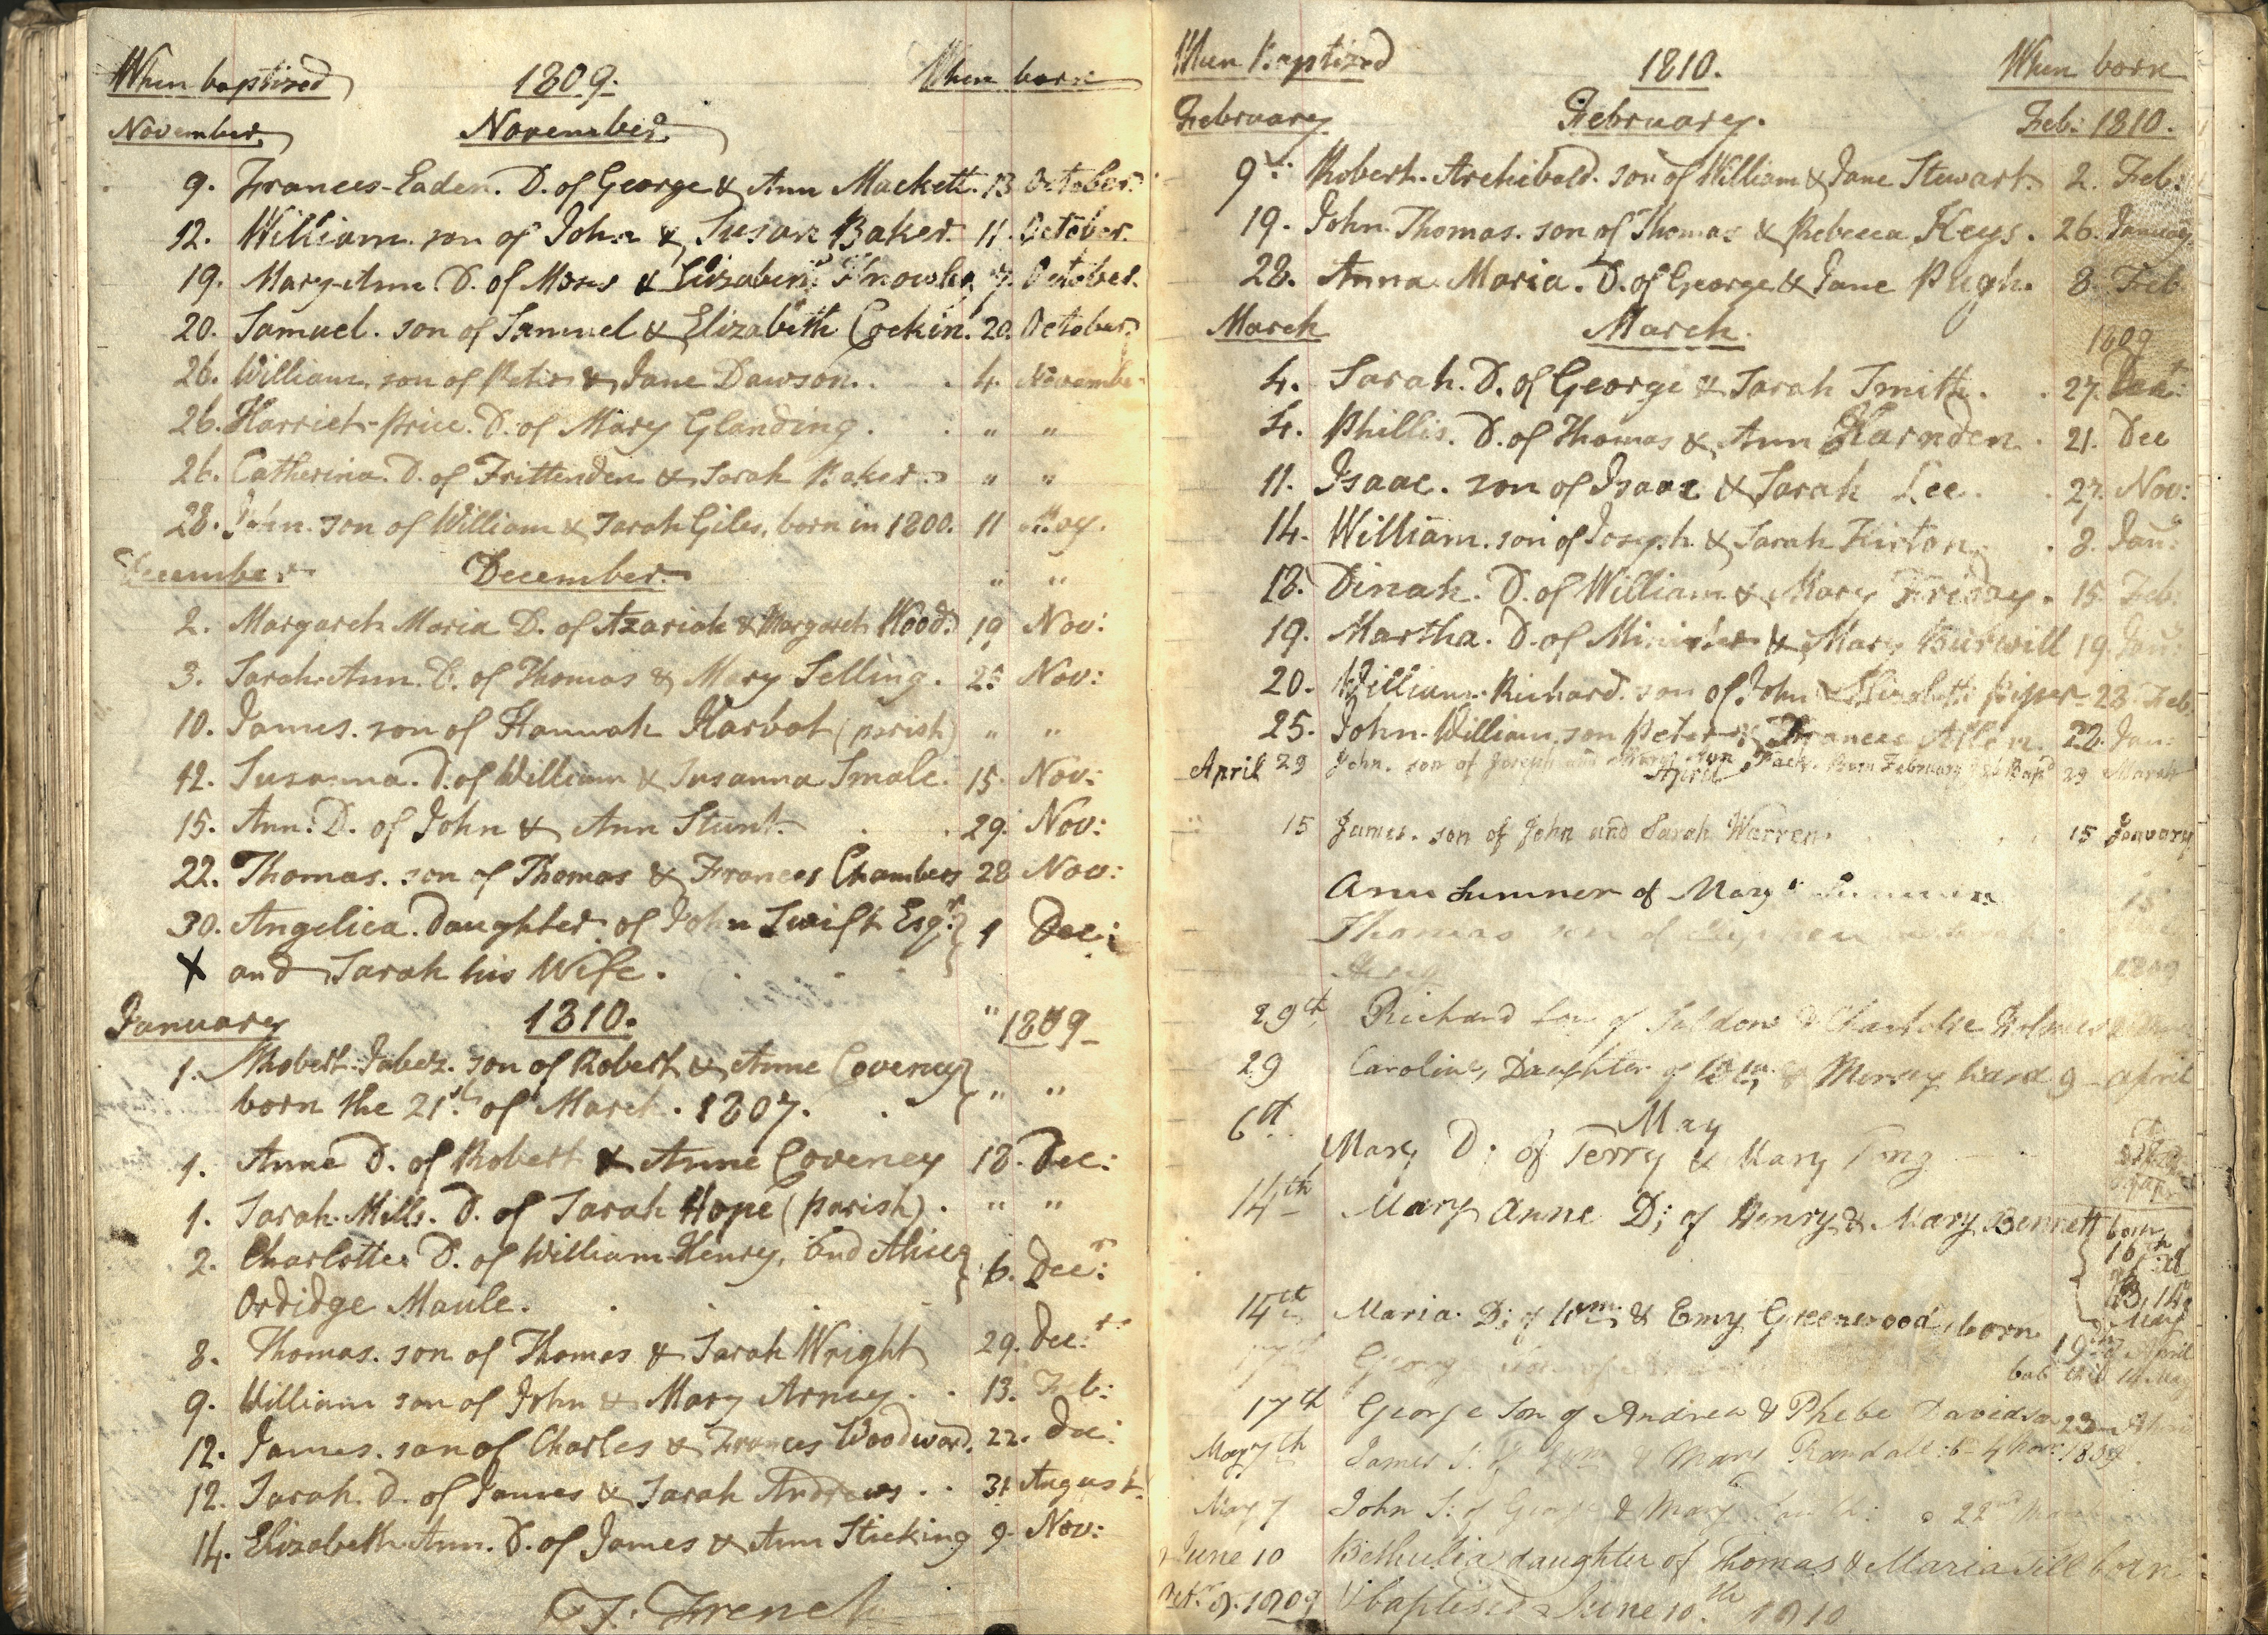 When baptized 1809. When born
November November
9. Frances-Eaden. D. of George & Ann Mackett. 13 October.
12. William. son of John & Susan Baker. 11. October.
19. Mary-Ann. D. of Moses & Elizabeth Knowles 7. October.
20. Samuel. son of Samuel & Elizabeth Cockin. 20. October.
26. William, son of Peter & Jane Dawson. . . 4. November
26. Harriet-Price. D. of Mary Glanding. . " "
26. Catherina. D. of Frittenden & Sarah Baker. " "
28. John. son of William & Sarah Giles, born in 1800. 11 May.
December December " "
2. Margaret Maria D. of Azariah & Margaret Wood. 19 Nov:
3. Sarah-Ann. D. of Thomas & Mary Selling. 25 Nov:
10. James. son of Hannah Harbot (parish) " "
12. Susanna. D. of William & Susanna Smale. 15. Nov:
15. Ann. D. of John & Ann Stunt. . . 29. Nov:
22. Thomas. son of Thomas & Frances Chambers 28 Nov:
30. Angelica. Daughter of John Swift Esqr. } 1 Dec:
X and Sarah his Wife. . . . .
January 1810. " 1809
1. Robert-Jabez. son of Robert & Anne Coveney }
born the 21st. of March. 1807. . } " "
1. Anne D. of Robert & Anne Coveney 18. Dec:
1. Sarah-Mills. D. of Sarah Hope (parish). " "
2. Charlotte. D. of William-Henry, and Alice } 6. Decr:
Ordidge Maule. . . .
8. Thomas. son of Thomas & Sarah Wright 29. Decr:
9. William son of John & Mary Arney. . 13. Feb:
12. James. son of Charles & Frances Woodward. 22. Dec:
12. Sarah. D. of James & Sarah Andrews. . 31 August.
14. Elizabeth Ann. D. of James & Ann Sticking 9. Nov:
J. French
When Baptized 1810. When born
February February. Feb: 1810.
9: Robert-Archibald. son of William & Jane Stewart. 2. Feb:
19. John-Thomas. son of Thomas & Rebecca Keys. 26. January
28. Anna-Maria. D. of George & Jane Pugh. 8. Feb
March March. 1809
4. Sarah. D. of George & Sarah Smith. . 27. Decr:
4. Phillis. D. of Thomas & Ann Harnden. 21. Dec
11. Isaac. son of Isaac & Sarah Lee. . 27. Nov:
14. William. son of Joseph & Sarah Kirton . 8. Jan:
18. Dinah. D. of William & Mary Friday. 15. Feb:
19. Martha. D. of & Mary Burwill 19. Jan:
20. William-Richard. son of John & Elizabeth Piper 23. Feb:
25. John-William, son Peter & Frances Allen. 22. Jan:
April 29 John. son of Joseph and Mary Ann Born February Bapd 29 March
April
15 James. son of John and Sarah Warren. 15 January
Ann Sumner of Mary 15
Thomas son of
1809
29th Richard Son of & Charlotte Holmes
29 Caroline, Daughter of Wm. & Mercy Hand 9 April
May
6th. Mary D; of Terry & Mary Tong
14th Mary Anne D; of Henry & Mary Bennett } born 16th
B, 14
May
14th Maria. D; of Wm. & Emy Greenwood, born 19th of April
bap this 14 May
17th George
17th George Son of Andrew & Phebe Davidson 23
May 7th James S: of & Mary Randall: b. 4 Nov: 1809.
May 7 John S: of George & Mary 22nd
June 10 Bethulia daughter of Thomas & Maria Till born
Octr. 9. 1809 & baptised June 10.th 1810